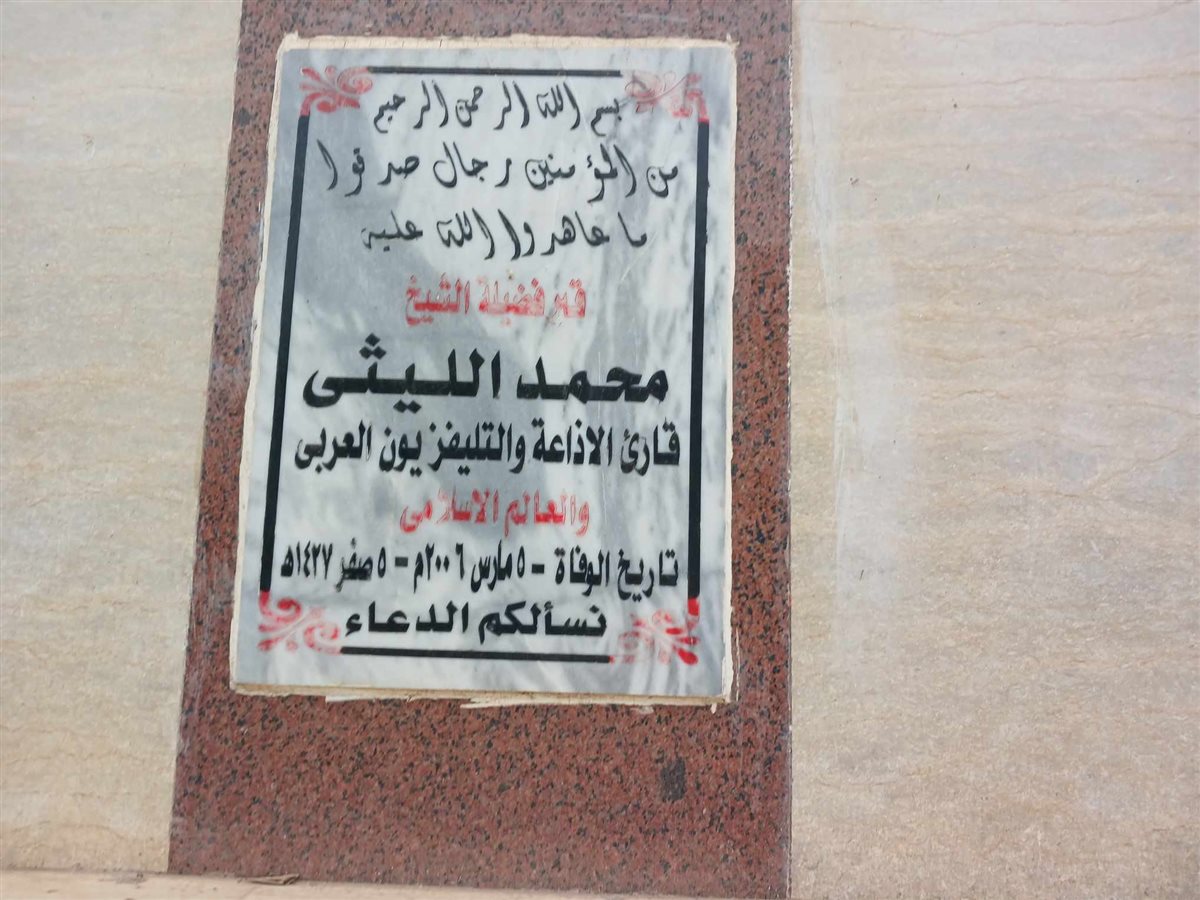 بسم الله الرحمن الرحيم
من المؤمنين رجال صدقوا
ما عاهدوا الله عليه
قبر فضيلة الشيخ
محمد الليثى
قارئ الاذاعة والتليفزيون العربى
والعالم الاسلامى
تاريخ الوفاة - ٥ مارس ٢٠٠٦م - ٥ صفر ١٤٢٧ه
نسألكم الدعاء